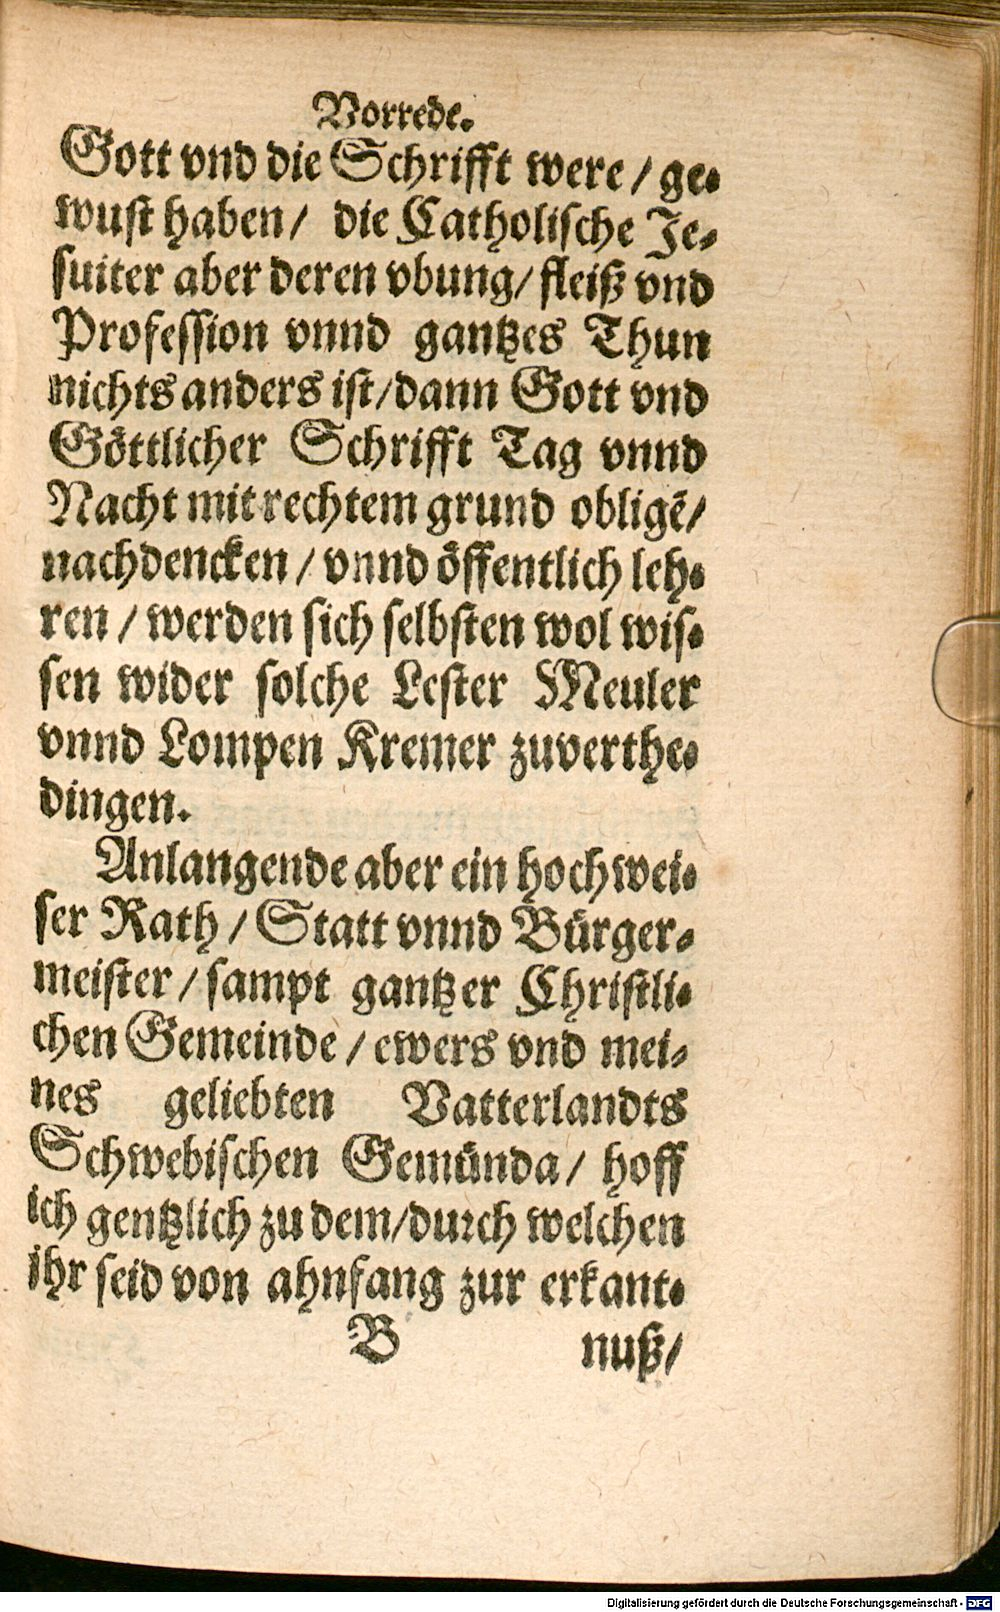 Vorrede.
Gott vnd die Schrifft were / ge-
wust haben / die Catholische Je-
suiter aber deren vbung / fleiß vnd
Profession vnnd gantzes Thun
nichts anders ist / dann Gott vnd
Göttlicher Schrifft Tag vnnd
Nacht mit rechtem grund obligẽ /
nachdencken / vnnd öffentlich leh-
ren / werden sich selbsten wol wis-
sen wider solche Lester Meuler
vnnd Lompen Kremer zuverthe-
dingen.
Anlangende aber ein hochwei-
ser Rath / Statt vnnd Bürger-
meister / sampt gantzer Christli-
chen Gemeinde / ewers vnd mei-
nes geliebten Vatterlandts
Schwebischen Gemünda / hoff
ich gentzlich zu dem / durch welchen
ihr seid von ahnfang zur erkant-
B nuß /
Digitalisierung gefördert durch die Deutsche Forschungsgemeinschaft - DFG